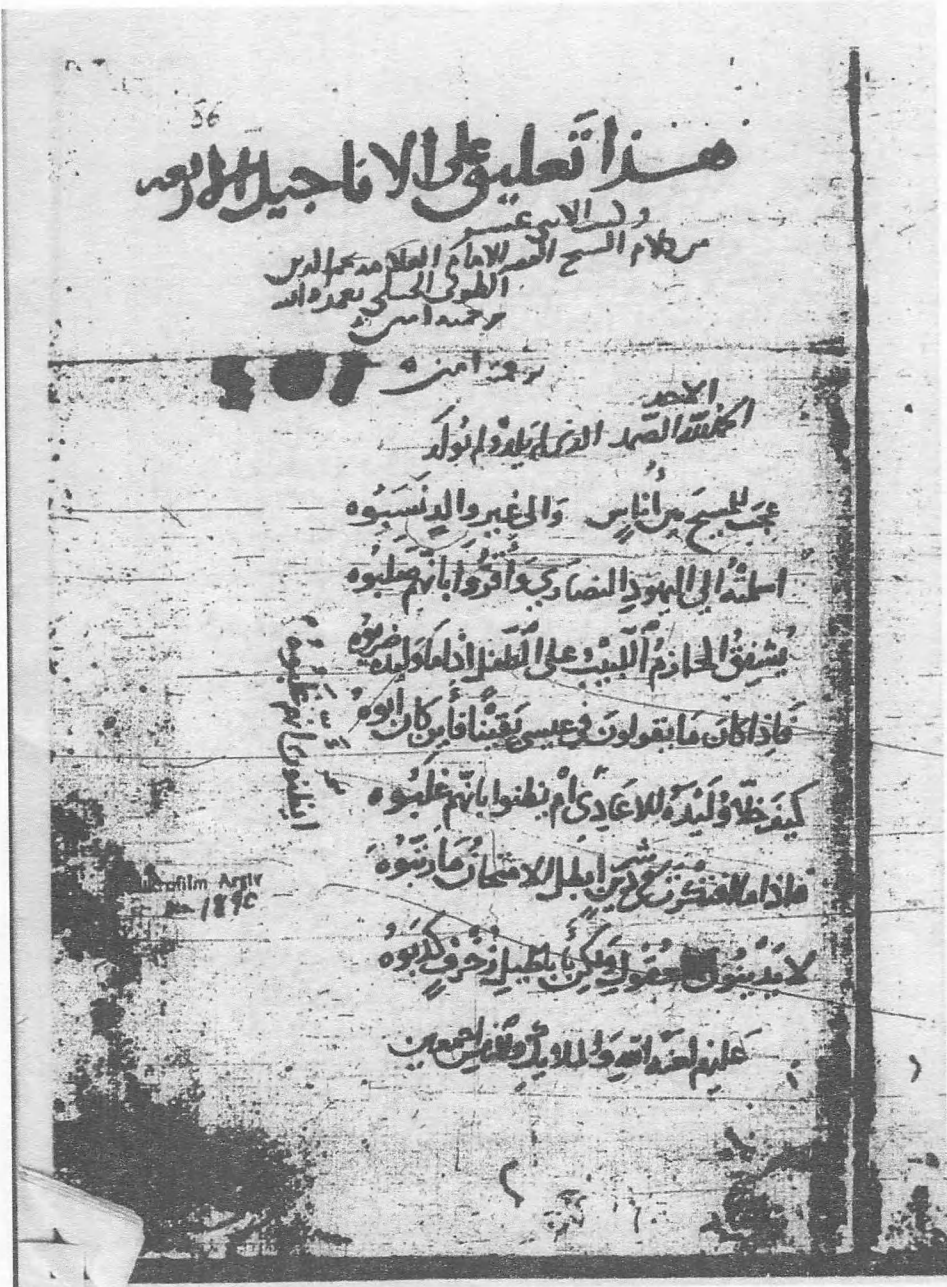 56
هذا تعليق على الاناجيل الاربعه
وكتب الانبى عشر
من كلام الشيخ الامام العلامه نجم الدين
الطوفى الحنبلى تغمده الله
برحمته امين
برحمته امين
الاحد
الحمد لله الصمد الذى لم يلد ولم يولد
عجب للمسيح بين أناس والى غير والد نسبوه
اسلمته الى اليهود النصارى وأقروا بأنهم صلبوه
يشفق الحازم اللبيب على الطفل اذا ما وليده ضربوه
فاذا كان ما يقولون فى عيسى يقينا فأين كان ابوه
كيف خلا وليده للاعادى أم يظنوا بانهم غلبوه
فاذا ما سألت عن شرح دين ابطل الامتحان ما رتبوه
لا يدينون بعقول ولكن بأباطيل زخرف كذبوه
عليهم لعنة الله والملايكة والناس اجمعين
ايظنون بانهم غلبوه
Mikrofilm Arşiv
No. 1890